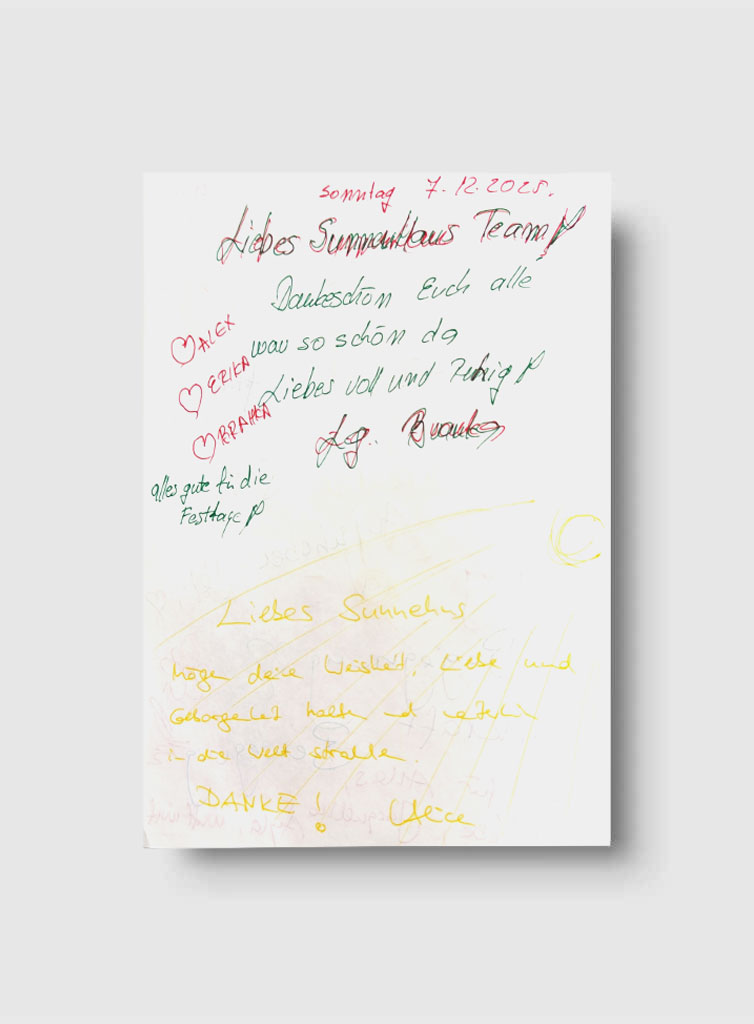 sonntag 7.12.2025.
Liebes Sunnenhaus Team!
Dankeschön Euch alle
war so schön da
Liebes voll und ruhig!
Lg. Branka
ALEX
ERIKA
BRANKA
alles gute für die
Festtage!
Liebes Sunnehus
Mögen deine Weisheit, Liebe und
Geborgenheit halten und weiterhin
in die Welt strahlen.
DANKE! Alice